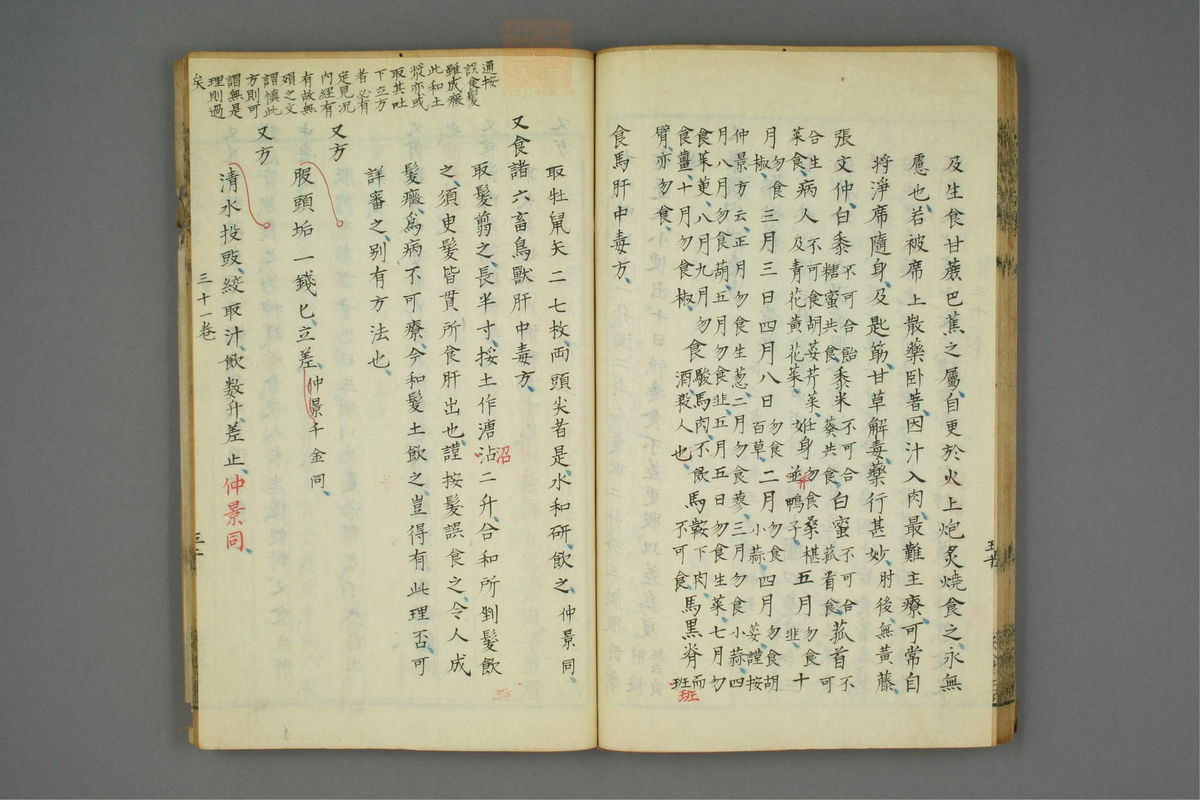 及生食甘蔗巴蕉之屬自更於火上炮炙燒食之永無
慮也若被席上散藥卧著因汁入肉最難主療可常自
将淨席隨身及匙筯甘草解毒藥行甚妙肘後無黃藤
張文仲白黍不可合飴糖蜜共食黍米不可合葵共食白蜜不可合菰首不可
合生菜食病人不可食胡荽芹菜及青花黃花菜妊身勿食桑椹並鴨子五月勿食韭十
月勿食椒三月三日四月八日勿食百草二月勿食小蒜四月勿食胡荽謹按
仲景方云正月勿食生葱二月勿食蓼三月勿食小蒜四
月八月勿食葫五月勿食韭五月五日勿食生菜七月勿
食茱萸八月九月勿食薑十月勿食椒
食駿馬肉不飲酒殺人也馬鞍下肉不可食馬黑脊而班臂亦勿食
班
食馬肝中毒方
取牡鼠矢二七枚兩頭尖者是水和研飲之仲景同
又食諸六畜鳥獸肝中毒方
取髮剪之長半寸挼土作溏沾二升合和所剉髮飲
沼
之須臾髮皆貫所食肝出也謹按髮誤食之令人成
髮癥為病不可療今和髮土飲之豈得有此理否可
詳審之別有方法也
又方
服頭垢一錢匕立差仲景千金同
又方
清水投豉絞取汁飲数升差止仲景同
三十一卷
通按
誤食髮
雖成癥
此和土
漿亦或
取其吐
下立方
者必有
定見况
内經有
有故無
殞之文
謂慎此
方則可
謂無是
理則過
矣